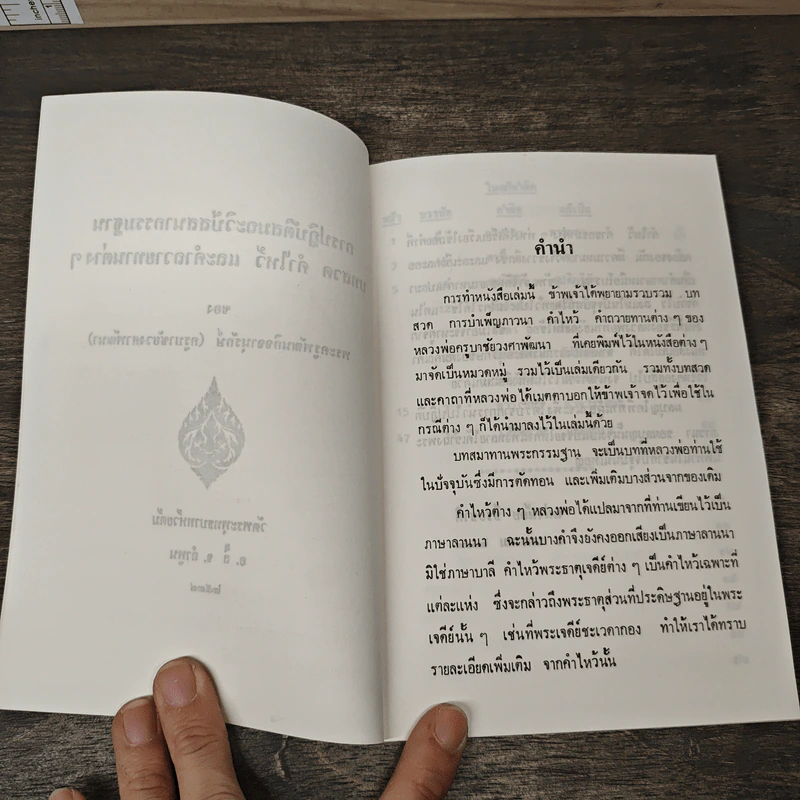 inches
การปฏิบัติสมถะวิปัสสนากรรมฐาน
บทสวด คำไหว้ และคำถวายทานต่าง ๆ
ของ
พระครูพัฒนกิจจานุรักษ์ (ครูบาชัยวงศาพัฒนา)
วัดพระพุทธบาทห้วยต้ม
อ. ลี้ จ. ลำพูน
คำนำ
การทำหนังสือเล่มนี้ ข้าพเจ้าได้พยายามรวบรวม บท
สวด การบำเพ็ญภาวนา คำไหว้ คำถวายทานต่าง ๆ ของ
หลวงพ่อครูบาชัยวงศาพัฒนา ที่เคยพิมพ์ไว้ในหนังสือต่าง ๆ
มาจัดเป็นหมวดหมู่ รวมไว้เป็นเล่มเดียวกัน รวมทั้งบทสวด
และคาถาที่หลวงพ่อได้เมตตาบอกให้ข้าพเจ้าจดไว้เพื่อใช้ใน
กรณีต่าง ๆ ก็ได้นำมาลงไว้ในเล่มนี้ด้วย
บทสมาทานพระกรรมฐาน จะเป็นบทที่หลวงพ่อท่านใช้
ในปัจจุบันซึ่งมีการตัดทอน และเพิ่มเติมบางส่วนจากของเดิม
คำไหว้ต่าง ๆ หลวงพ่อได้แปลมาจากที่ท่านเขียนไว้เป็น
ภาษาลานนา ฉะนั้นบางคำจึงยังคงออกเสียงเป็นภาษาลานนา
มิใช่ภาษาบาลี คำไหว้พระธาตุเจดีย์ต่าง ๆ เป็นคำไหว้เฉพาะที่
แต่ละแห่ง ซึ่งจะกล่าวถึงพระธาตุส่วนที่ประดิษฐานอยู่ในพระ
เจดีย์นั้น ๆ เช่นที่พระเจดีย์ชะเวดากอง ทำให้เราได้ทราบ
รายละเอียดเพิ่มเติม จากคำไหว้นั้น